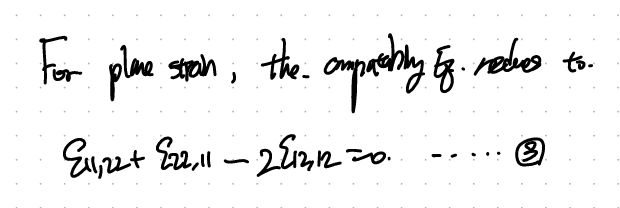 For plane strain, the compatibility Eq. reduces to.
ε₁₁,₂₂ + ε₂₂,₁₁ - 2ε₁₂,₁₂ = 0. ------ ③